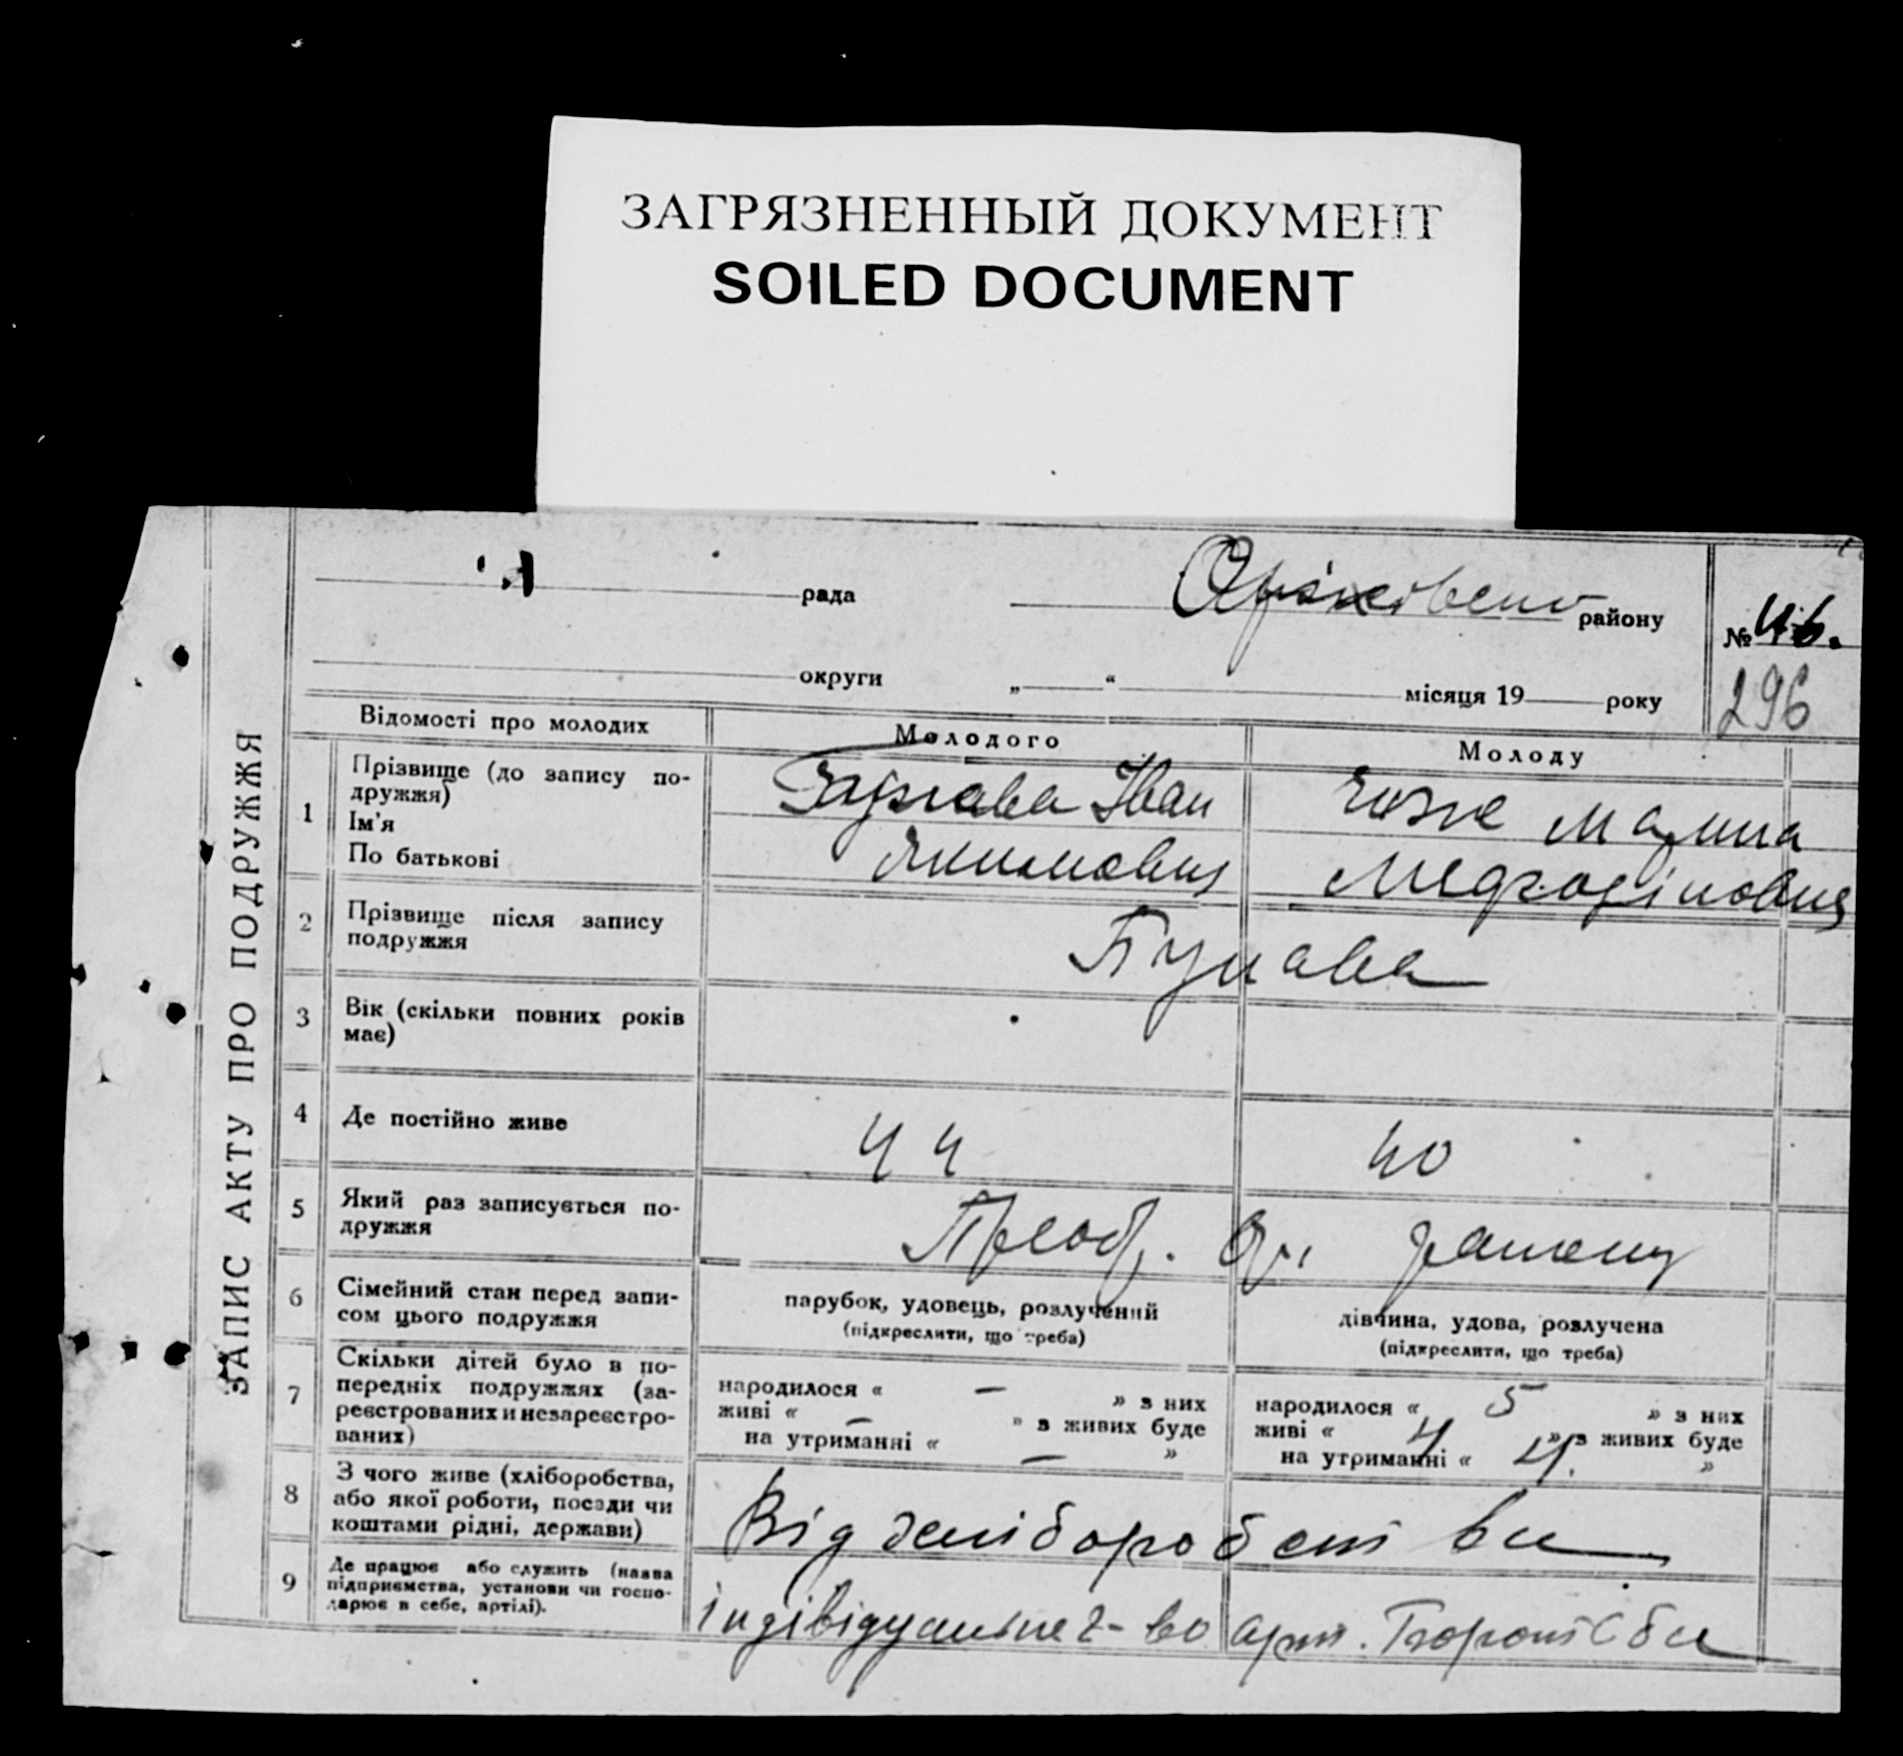 ЗАГРЯЗНЕННЫЙ ДОКУМЕНТ
SOILED DOCUMENT
ЗАПИС АКТУ ПРО ПОДРУЖЖЯ
рада
району
№ 46.
округи „ “ місяця 19 року
296
Відомості про молодих
Молодого
Молоду
1
Прізвище (до запису по-
дружжя)
Ім'я
По батькові
Іван
Якимович
Марина
2
Прізвище після запису
подружжя
3
Вік (скільки повних років
має)
4
Де постійно живе
44
40
5
Який раз записується по-
дружжя
Преоб. Ор.
6
Сімейний стан перед запи-
сом цього подружжя
парубок, удовець, розлучений
(підкреслити, що треба)
дівчина, удова, розлучена
(підкреслити, що треба)
7
Скільки дітей було в по-
передніх подружжях (за-
реєстрованих и незареєстро-
ваних)
народилося « – » з них
живі « – » з живих буде
на утриманні « – »
народилося « 5 » з них
живі « 4 » з живих буде
на утриманні « 4. »
8
З чого живе (хліборобства,
або якої роботи, посади чи
коштами рідні, держави)
Від
9
Де працює або служить (назва
підприємства, установи чи госпо-
дарює в себе, артілі).
індівідуальне г-во
арт.